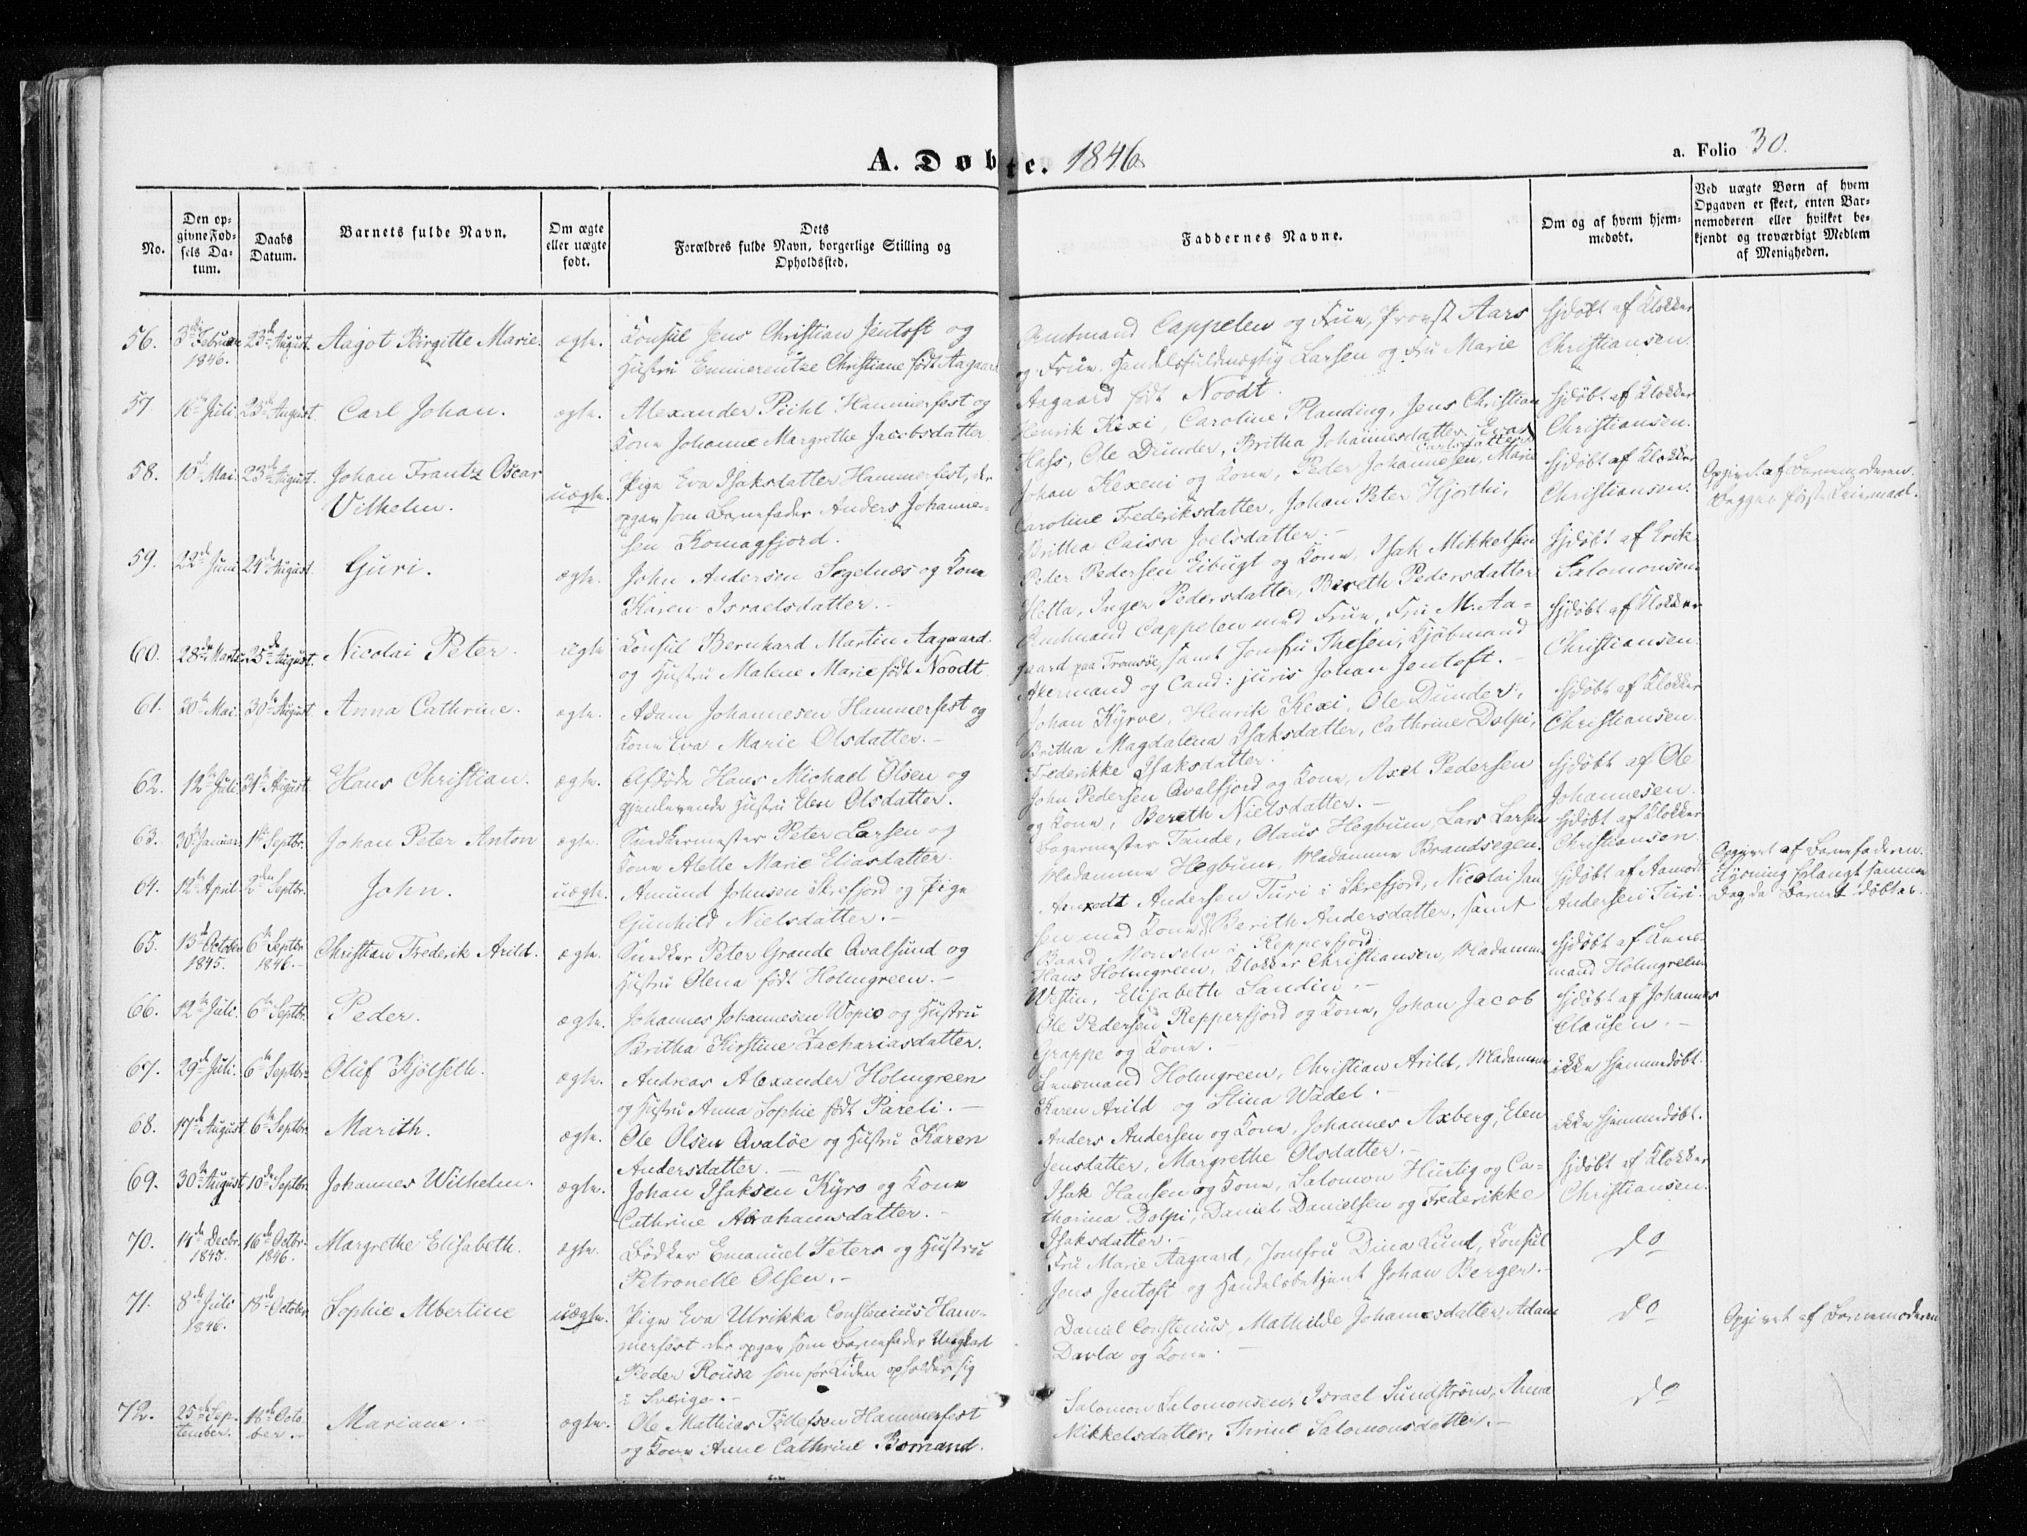 A. Døbte. 1846.
a. Folio 30.
No.
Den op-
givne Fød-
sels Da-
tum.
Daabs
Datum.
Barnets fulde Navn.
Om ægte
eller uægte
født.
Dets
Forældres fulde Navn, borgerlige Stilling og
Opholdssted.
Faddernes Navne.
Om og af hvem hjem-
medøbt.
Ved uægte Børn af hvem
Opgaven er skeet, enten Bar-
nemoderen eller hvilket be-
kjendt og troværdigt Medlem
af Menigheden.
56. 3die Februar 1846. 23de August. Aagot Birgitte Marie. ægte. Consul Jens Christian Jentoft og
Hustru Emmerentze Christiane født Aagaard
Amtmand Cappelen og Frue, Provst Aars
og Frue, Handelsfuldmægtig Larsen og Fru Marie
Aagaard født Noodt.
Hjdøbt af Klokker
Christiansen.
57 16de Juli. 23de August Carl Johan. ægte. Alexander Piihl Hammerfest og
Kone Johanne Margrethe Jacobsdatter.
Henrik Kexi, Caroline Planding, Jens Christian
Hass, Ole Dunder, Britha Johannesdatter, Evas
Hjdøbt af Klokker
Christiansen.
58. 10de Mai. 23de August. Johan Frantz Oscar
Vilhelm. uægte. Pige Eva Isaksdatter Hammerfest, der
opgav som Barnefader Anders Johanne-
sen Komagfjord.
Johan Kexeni og Kone, Peder Johannesen, Marie
Carlsdatter
Caroline Frederiksdatter, Johan Peter Hjorthi,
Britha Caisa Joelsdatter.
Hjdøbt af Klokker
Christiansen.
Opgivet af Barnemoderen.
Begges første Leiermaal.
59. 22de Juni 24de August Guri. ægte. John Andersen Sogelnæs og Kone
Karen Israelsdatter.
Peder Pedersen Eibugt og Kone, Isak Mikkelsen
Hetta, Inger Pedersdatter, Bereth Pedersdatter
Hjdøbt af Erik
Salomonsen
60. 28de Marts 25de August. Nicolai Peter. ægte Consul Bernhard Martin Aagaard
og Hustru Malene Marie født Noodt
Amtmand Cappelen med Frue, Fru M. Aa-
gaard paa Tromsøe, samt Jomfru Thesen, Kjøbmand
Akermand og Cand: juris Johan Jentoft.
Hjdøbt af Klokker
Christiansen.
61. 20de Mai. 30te August Anna Cathrine. ægte. Adam Johannesen Hammerfest og
Kone Eva Marie Olsdatter.
Johan Kyrve, Henrik Kexi, Ole Dunder,
Britha Magdalena Isaksdatter, Cathrine Dolpi,
Frederikke Isaksdatter.
Hjdøbt af Klokker
Christiansen.
62. 12te Juli. 31te August Hans Christian. ægte. Afdøde Hans Michael Olsen og
gjenlevende Hustru Elen Olsdatter.
John Pedersen Qvalfjord og Kone, Axel Pedersen
og Kone, Bereth Nielsdatter.
Hjdøbt af Ole
Johannesen.
63. 30te Januar. 1ste Septbr. Johan Peter Anton ægte. Snedkermester Peter Larsen og
Kone Alette Marie Eliasdatter.
Bagermester Tande, Olaus Hegbum, Lars Larsen
Madamme Hegbum, Madamme Brandsegen.
Hjdøbt af Klokker
Christiansen
64. 12te April 2den Septbr. John. uægte. Amund Johnsen Skrefjord og Pige
Gunhild Nielsdatter.
Andersen Turi i Skrefjord, Nicolai Jan
sen med Kone, Berith Andersdatter, samt
Baard Monseln i Repperfjord.
Hjdøbt af
Andersen Turi.
Opgivet af Barnefaderen.
samme
Dag da Barnet døbtes.
65. 13de October 1845. 6te Septbr 1846. Christian Frederik Arild. ægte. Snedker Peter Grande Qvalsund og
Hustru Olena født Holmgreen.
Hans Holmgreen, Klokker Christiansen, Madamme
Westin, Elisabeth Sandin.
Hjdøbt af Lens-
mand Holmgreen
66. 12te Juli. 6te Septbr. Peder. ægte. Johannes Johannesen Wopio og Hustru
Britha Kirstine Zachariasdatter.
Ole Pedersen Repperfjord og Kone, Johan Jacob
Grappe og Kone.
Hjdøbt af Johannes
Clausen.
67. 29de Juli. 6te Septbr. Oluf Kjølseth. ægte. Andreas Alexander Holmgreen
og Hustru Anna Sophie født Pareli.
Lensmand Holmgreen, Christian Arild, Madamme
Karen Arild og Stina Wadel.
ikke hjemmedøbt.
68. 17de August 6te Septbr. Marith. ægte. Ole Olsen Qvaløe og Hustru Karen
Andersdatter.
Anders Andersen og Kone, Johannes Axberg, Elen
Jensdatter, Margrethe Olsdatter.
ikke hjemmedøbt.
69. 30te August 10de Septbr. Johannes Wilhelm. ægte. Johan Isaksen Kyro og Kone
Cathrine Abrahamsdatter.
Isak Hansen og Kone, Salomon Hurtig og Ca-
thorina Dolpi, Daniel Danielsen og Frederikke
Isaksdatter.
Hjdøbt af Klokker
Christiansen.
70. 14de Decbr. 1845. 16de Octbr. 1846. Margrethe Elisabeth. ægte. Bødker Emanuel Peters og Hustru
Petronelle Olsen.
Fru Marie Aagaard, Jomfru Dina Lund, Consul
Jens Jentoft og Handelsbetjent Johan Berger.
do
71. 8de Juli 1846. 18de October Sophie Albertine uægte. Pige Eva Ulrikka Constenius Ham-
merfest der opgav som Barnefader Ungkarl
Peder Rousa som for Tiden opholder sig
i Sverige.
Daniel Constenius, Mathilde Johannesdatter, Adam
Davla og Kone.
do
Opgivet af Barnemoderen
72. 25de Sep-
tember. 18de Octo-
ber. Mariane. ægte. Ole Mathias Tollefsen Hammerfest
og Kone Anne Cathrine Bomand.
Salomon Salomonsen, Israel Sundstrøm, Anna
Mikkelsdatter, Thrine Salomonsdatter.
do